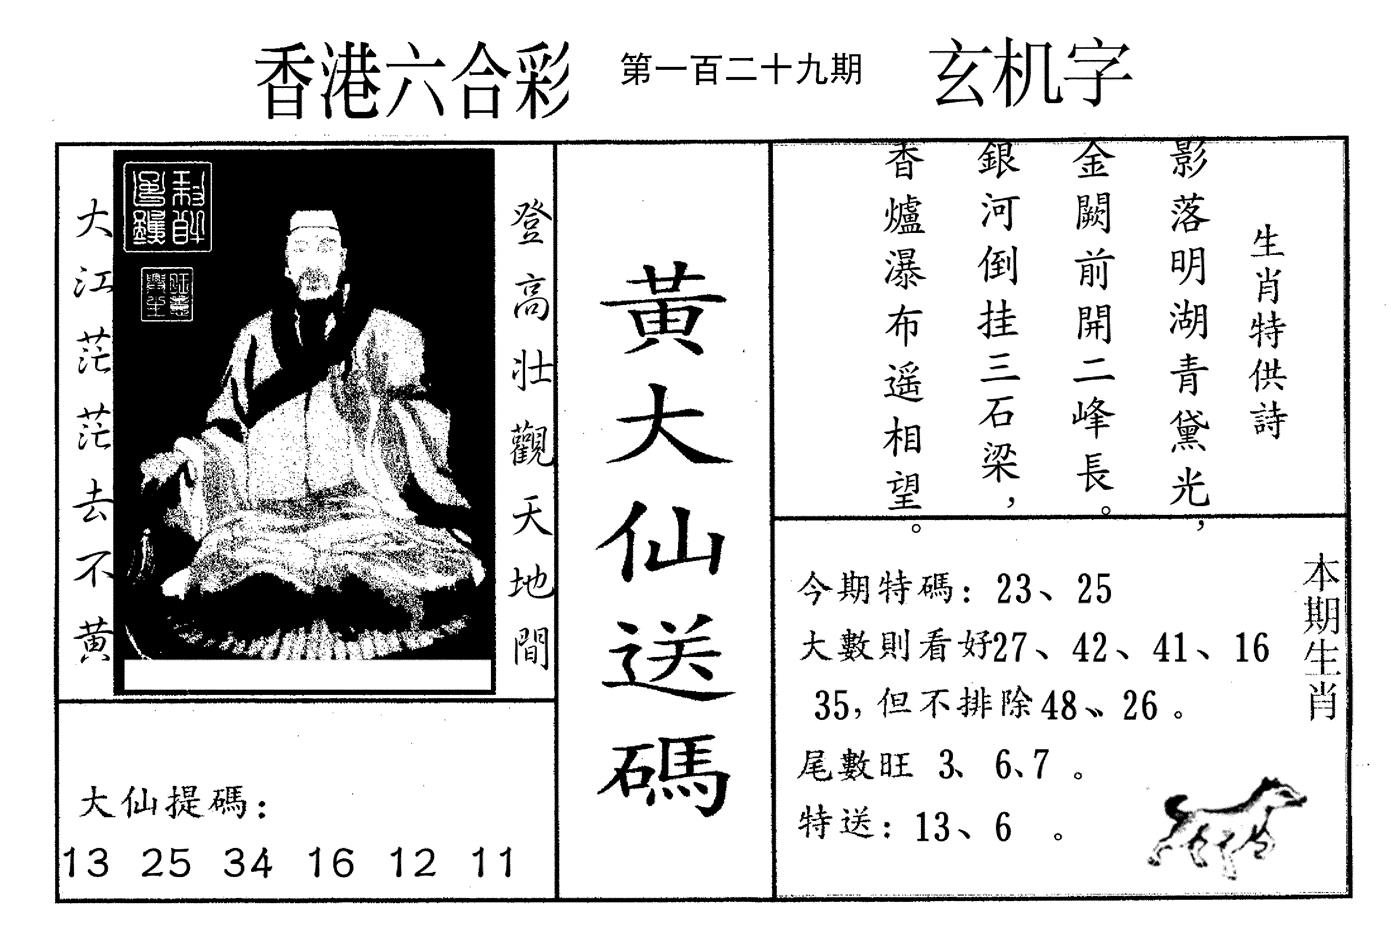 香港六合彩 第一百二十九期 玄机字
登高壮觀天地間
大江茫茫去不黄
黃大仙送碼
生肖特供詩
影落明湖青黛光，
金闕前開二峰長。
銀河倒挂三石梁，
香爐瀑布遥相望。
本期生肖
今期特碼：23、25
大數則看好27、42、41、16
35，但不排除48、26。
尾數旺 3、6、7。
特送：13、6 。
大仙提碼：
13 25 34 16 12 11